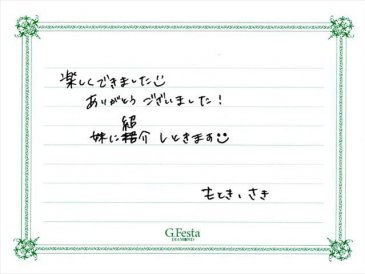 楽しくできました
ありがとうございました!
妹に紹介しときます
もとき、さき
G.Festa
DIAMOND